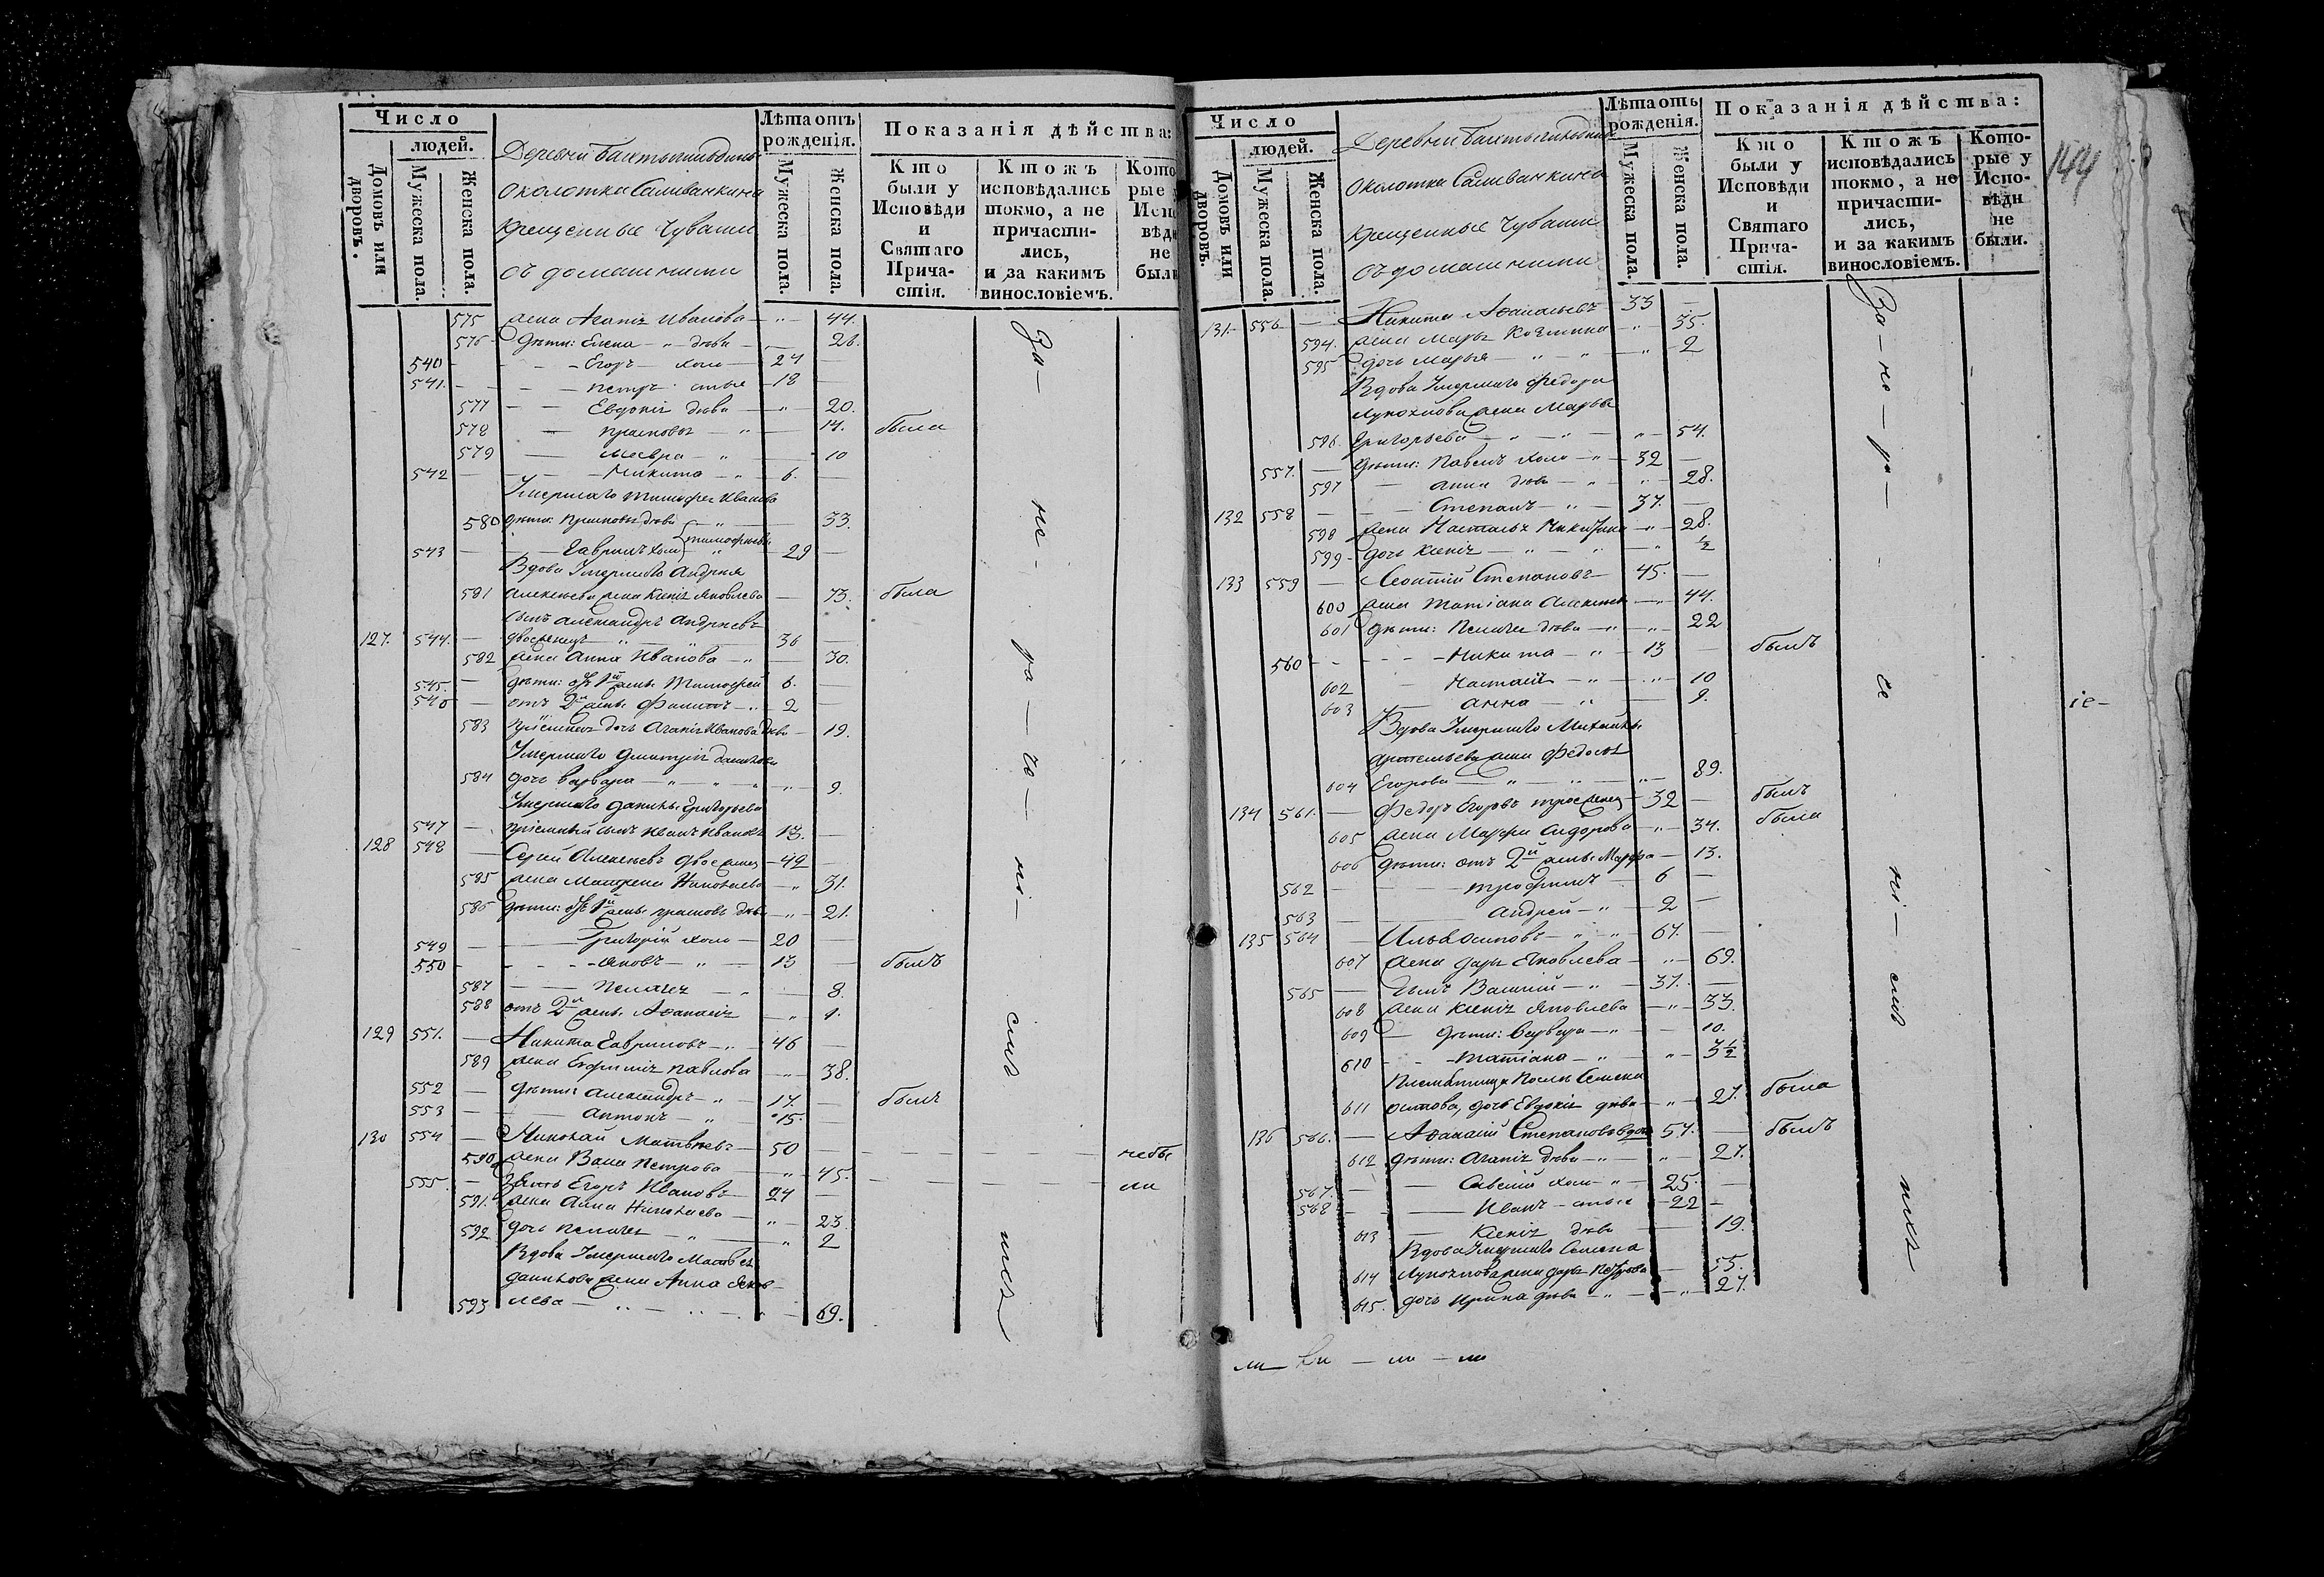 Число
людей.
Домовъ или дворовъ.
Мужеска пола.
Женска пола.
Деревни
околотка Саливанкина
крещенные Чуваши
съ домашними
Лѣта отъ рожденія.
Мужеска пола.
Женска пола.
Показанія дѣйства:
Кто были у Исповѣди и Святаго Причастія.
Ктожъ исповѣдались токмо, а не причастились, и за какимъ винословіемъ.
575 жена Агапія Иванова — " — 44.
576 дѣти: Елена — " — дѣвка — 26.
540 — Егоръ — холо — 24 —
541. — Петръ — 18 —
577 — Евдокія дѣвка — " — 20.
578 — Прасковья — " — 14. была
579 — Мавра — " — 10
542 — Никита — " — 6. —
Умершаго Тимофея Иванова
580 дѣти: Прасковья дѣвка — " — 33.
Тимофеевы
543 — Гаврилъ холо — " — 29 —
Вдова Умершаго Андрея
581 Алексѣева жена Ксенія Яковлева — 73. была
сынъ Александръ Андреевъ
127. 544. — двоеженецъ — " — 36 —
582 жена Анна Иванова — " — 30.
545. — дѣти: отъ 1й жены Тимофей 6. —
546 — отъ 2й жены Филиппъ — " 2 —
583 дочь Агапія Иванова дѣвка — 19.
Умершаго Дмитрія Данилова
584 дочь Варвара — " — " — 9.
Умершаго Данилы Григорьева
547 — пріемный сынъ Иванъ Ивановъ 13. —
128 548 — Сергѣй Алексѣевъ двоеженец — 42 —
585 жена Матрена Николаева — " — 31.
586 дѣти: отъ 1й жены Прасковья дѣвка — " — 21.
549 — Григорій холо — 20 —
550 — Яковъ — " — 13 — былъ
587 — Пелагея — " — 8.
588 отъ 2й жены Афанасія — " — 1.
129 551. — Никита Гавриловъ — " — 46 —
589 жена Евфимія Павлова — " — 38.
552 — дѣти: Александръ — " — 17. — былъ
553 — Антонъ — " — 15. —
130 554 — Николай Матвѣевъ — 50 — небы
590 жена Васа Петрова — " — 45.
555 — зять Егоръ Ивановъ — 24 — ли
591. жена Анна Николаева — " — 23
592 дочь Пелагея — " — " — 2
Вдова Умершаго Матвея
Данилова жена Анна Яков-
593 лева — " — " — 69.
За — не — ра — че — ні — емъ
Число
людей.
Домовъ или дворовъ.
Мужеска пола.
Женска пола.
Деревни
околотка Саливанкина
крещенные Чуваши
съ домашними
Лѣта отъ рожденія.
Мужеска пола.
Женска пола.
Показанія дѣйства:
Кто были у Исповѣди и Святаго Причастія.
Ктожъ исповѣдались токмо, а не причастились, и за какимъ винословіемъ.
Которые у Исповѣди не были.
144
131. 556 — Никита Афанасьевъ 33 —
594. жена Марья Козмина — " — 35.
595 дочь Марья — " — " — 2
Вдова Умершаго Федора
жена Марья
596. Григорьева — " — " — 54.
557. — дѣти: Павелъ холо — " — 32 —
597 — Анна дѣвка — " — 28.
132 558 — Степанъ — " — 37. —
598 жена Настасья Никитина — " — 28.
599 — дочь Ксенія — " — " — ½
133 559 — Леонтій Степановъ — 45. —
600 жена Татіана Алексѣева — " — 44.
601 дѣти: Пелагея дѣвка — " — 22
560 — Никита — " — 13 — былъ
602 — Настасія — " — 10
603 — Анна — " — 9.
Вдова Умершаго Михайлы
жена Федосья
604 Егорова — " — " — 89.
134 561. — Федоръ Егоровъ троеженец — 32 — былъ
605 жена Марфа Сидорова — " — 34. была
606 дѣти: отъ 2й жены Марфа — 13.
562 — Трофимъ — 6 —
563 — Андрей — " — 2 —
135 564 — Илья Осиповъ — " — 67. —
607 жена Дарья Яковлева — " — 69.
565 — сынъ Василій — " — 37. —
608 жена Ксенія Яковлева — " — 33.
609 — дѣти: Варвара — " — 10.
610 — Татіана — " — 3½
Семена
611 Осипова, дочь Евдокія дѣвка — " — 27. была
136 566. — Афанасій Степановъ вдов 57. — былъ
612 дѣти: Агапія дѣвка — " — 27.
567. — Савелій холо — " — 25. —
568 — Иванъ — 22 —
613 — Ксенія дѣвка — 19.
Вдова Умершаго Семена
614 жена Дарья Петрова — 55.
615. дочь Ирина дѣвка — " — 27.
За — не — ра —
че
ні — емъ
іе —